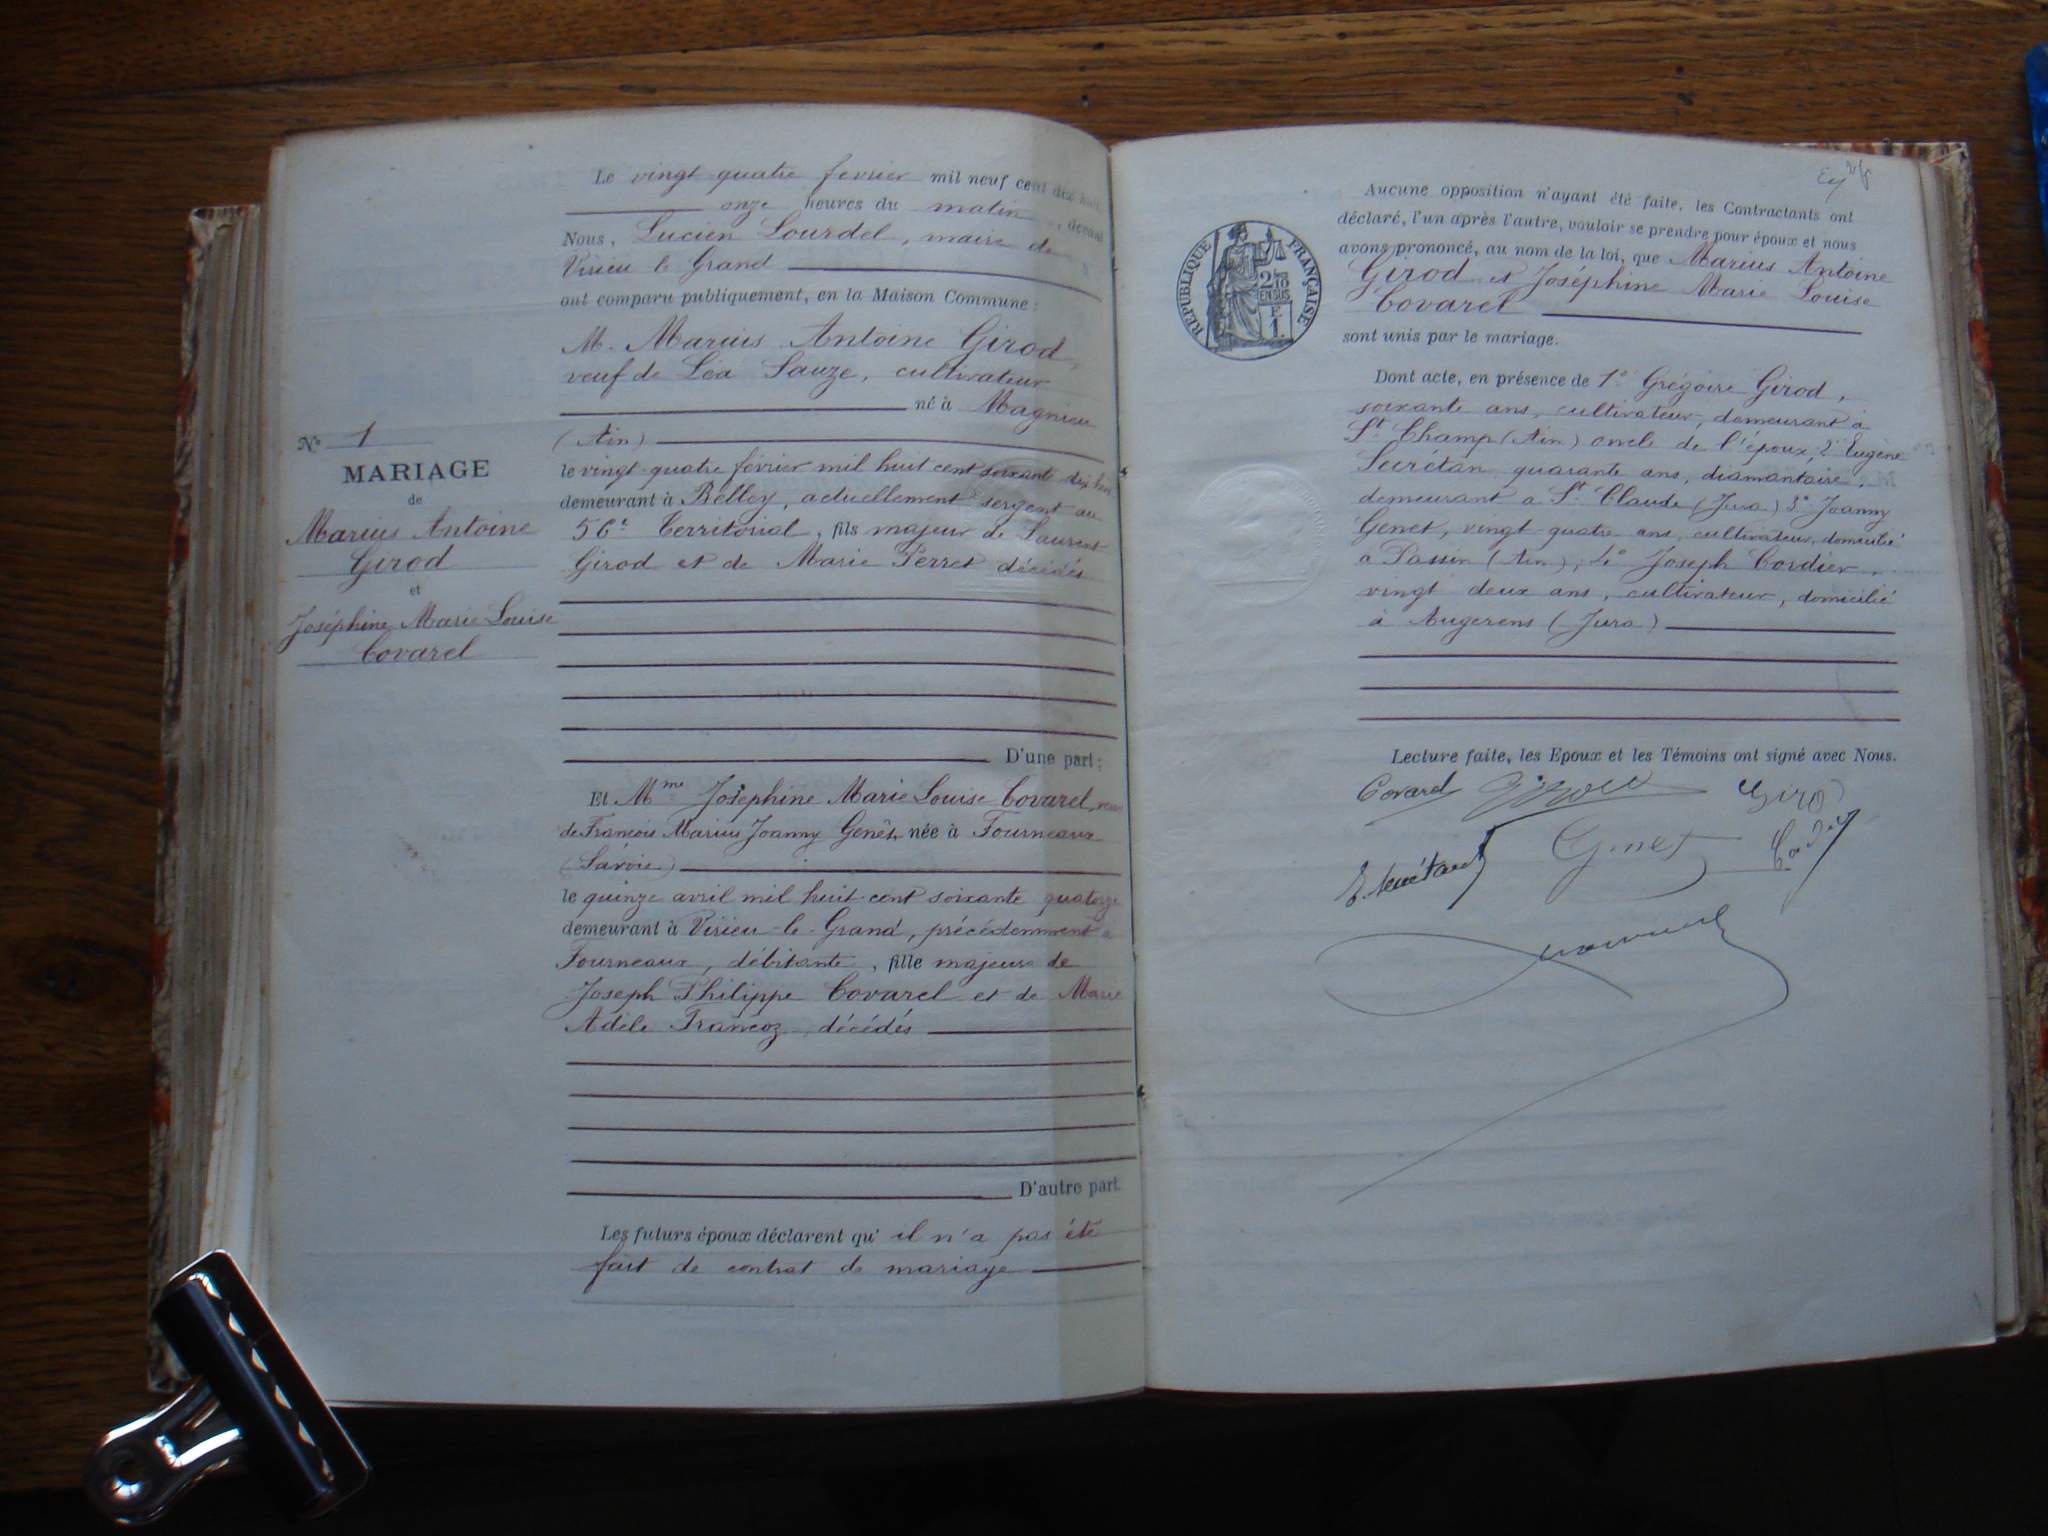 Le vingt quatre fevrier mil neuf cent dix huit,
onze heures du matin, devant
Nous, Lucien Lourdel, maire de
Virieu le Grand
ont comparu publiquement, en la Maison Commune :
M. Marius Antoine Girod,
veuf de Léa Sauze, cultivateur
né à Magnieu
(Ain)
le vingt-quatre février mil huit cent soixante dix huit
demeurant à Belley, actuellement sergent au
56e Territorial, fils majeur de Laurent
Girod et de Marie Perret décédés
D'une part ;
Nº 1
MARIAGE
de
Marius Antoine
Girod
et
Joséphine Marie Louise
Covarel
Et Mme Joséphine Marie Louise Covarel, veuve
de François Marius Joanny Genêt, née à Fourneaux
(Savoie)
le quinze avril mil huit cent soixante quatorze
demeurant à Virieu-le-Grand, précédemment à
Fourneaux, débitante, fille majeure de
Joseph Philippe Covarel et de Marie
Adèle Francoz, décédés
D'autre part.
Les futurs époux déclarent qu'il n'a pas été
fait de contrat de mariage
Aucune opposition n'ayant été faite, les Contractants ont
déclaré, l'un après l'autre, vouloir se prendre pour époux et nous
avons prononcé, au nom de la loi, que Marius Antoine
Girod et Joséphine Marie Louise
Covarel
sont unis par le mariage.
RÉPUBLIQUE FRANÇAISE
2/10
EN SUS
F.
1.
Dont acte, en présence de 1º Grégoire Girod,
soixante ans, cultivateur, demeurant à
St Champ (Ain) oncle de l'époux, 2º Eugène
Secrétan quarante ans, diamantaire,
demeurant a St Claude (Jura) 3º Joanny
Genet, vingt quatre ans, cultivateur, domicilié
a Passin (Ain), 4º Joseph Cordier,
vingt deux ans, cultivateur, domicilié
à Augerens (Jura)
Lecture faite, les Epoux et les Témoins ont signé avec Nous.
Covarel Girod Giro
E. Secrétan Genet Cordier